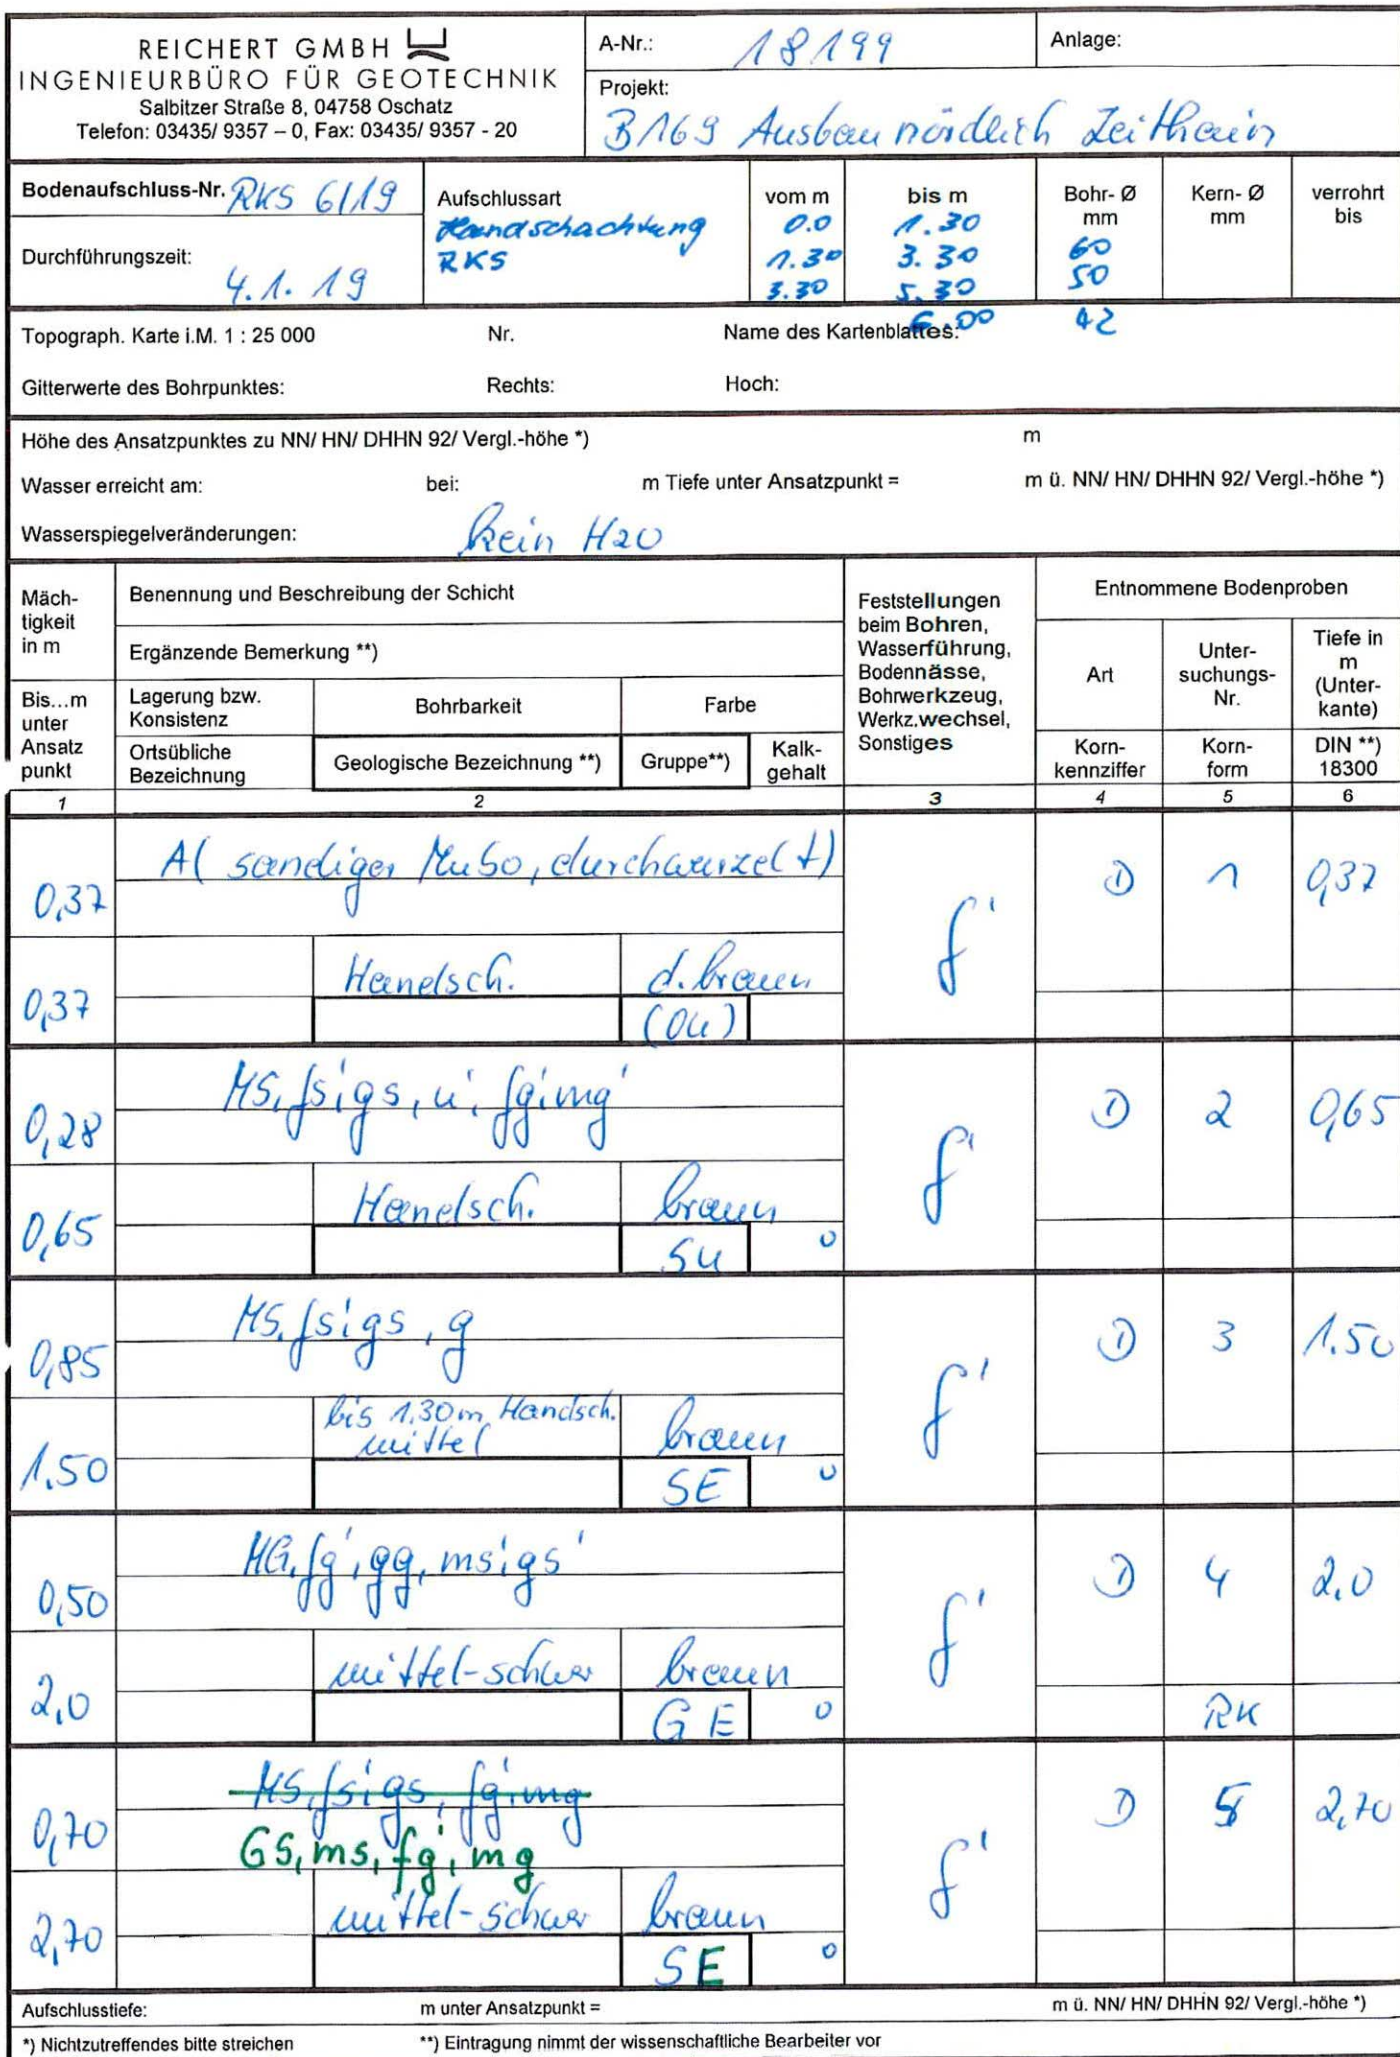 REICHERT GMBH
INGENIEURBÜRO FÜR GEOTECHNIK
Salbitzer Straße 8, 04758 Oschatz
Telefon: 03435/ 9357 – 0, Fax: 03435/ 9357 - 20
A-Nr.: 18199
Anlage:
Projekt:
B169 Ausbau nördlich Zeithain
Bodenaufschluss-Nr. RKS 6/19
Durchführungszeit:
4.1.19
Aufschlussart vom m bis m Bohr- Ø mm Kern- Ø mm verrohrt bis
Handschachtung 0.0 1.30
RKS 1.30 3.30 60
3.30 5.30 50
6.00 42
Topograph. Karte i.M. 1 : 25 000 Nr. Name des Kartenblattes:
Gitterwerte des Bohrpunktes: Rechts: Hoch:
Höhe des Ansatzpunktes zu NN/ HN/ DHHN 92/ Vergl.-höhe *) m
Wasser erreicht am: bei: m Tiefe unter Ansatzpunkt = m ü. NN/ HN/ DHHN 92/ Vergl.-höhe *)
Wasserspiegelveränderungen: kein H2O
Mäch-
tigkeit
in m
Bis...m
unter
Ansatz
punkt
Benennung und Beschreibung der Schicht
Ergänzende Bemerkung **)
Lagerung bzw.
Konsistenz
Bohrbarkeit
Farbe
Ortsübliche
Bezeichnung
Geologische Bezeichnung **)
Gruppe**)
Kalk-
gehalt
Feststellungen
beim Bohren,
Wasserführung,
Bodennässe,
Bohrwerkzeug,
Werkz.wechsel,
Sonstiges
Entnommene Bodenproben
Art
Unter-
suchungs-
Nr.
Tiefe in
m
(Unter-
kante)
Korn-
kennziffer
Korn-
form
DIN **)
18300
1 2 3 4 5 6
A( sandiger Mubo, durchwurzelt)
0,37 f' D 1 0,37
Handsch. d.braun
0,37 (OU)
MS, fs, gs, u', fg, mg'
0,28 f' D 2 0,65
Handsch. braun
0,65 SU 0
MS, fs', gs, g
0,85 f' D 3 1.50
bis 1.30m Handsch.
mittel braun
1.50 SE 0
MG, fg', gg, ms', gs'
0,50 f' D 4 2,0
mittel-schwer braun
2,0 GE 0 RK
MS, fs', gs, fg', mg
0,70 f' D 5 2,70
GS, ms, fg', mg
mittel-schwer braun
2,70 SE 0
Aufschlusstiefe: m unter Ansatzpunkt = m ü. NN/ HN/ DHHN 92/ Vergl.-höhe *)
*) Nichtzutreffendes bitte streichen **) Eintragung nimmt der wissenschaftliche Bearbeiter vor